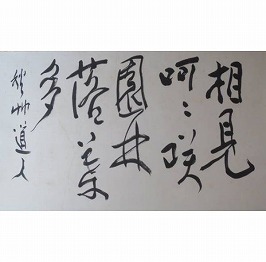 相見
呵々咲
園林
落葉
多
秋艸道人